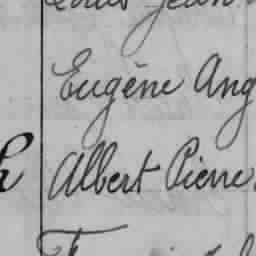 Louis Jean
Eugène Ang
Albert Pierre